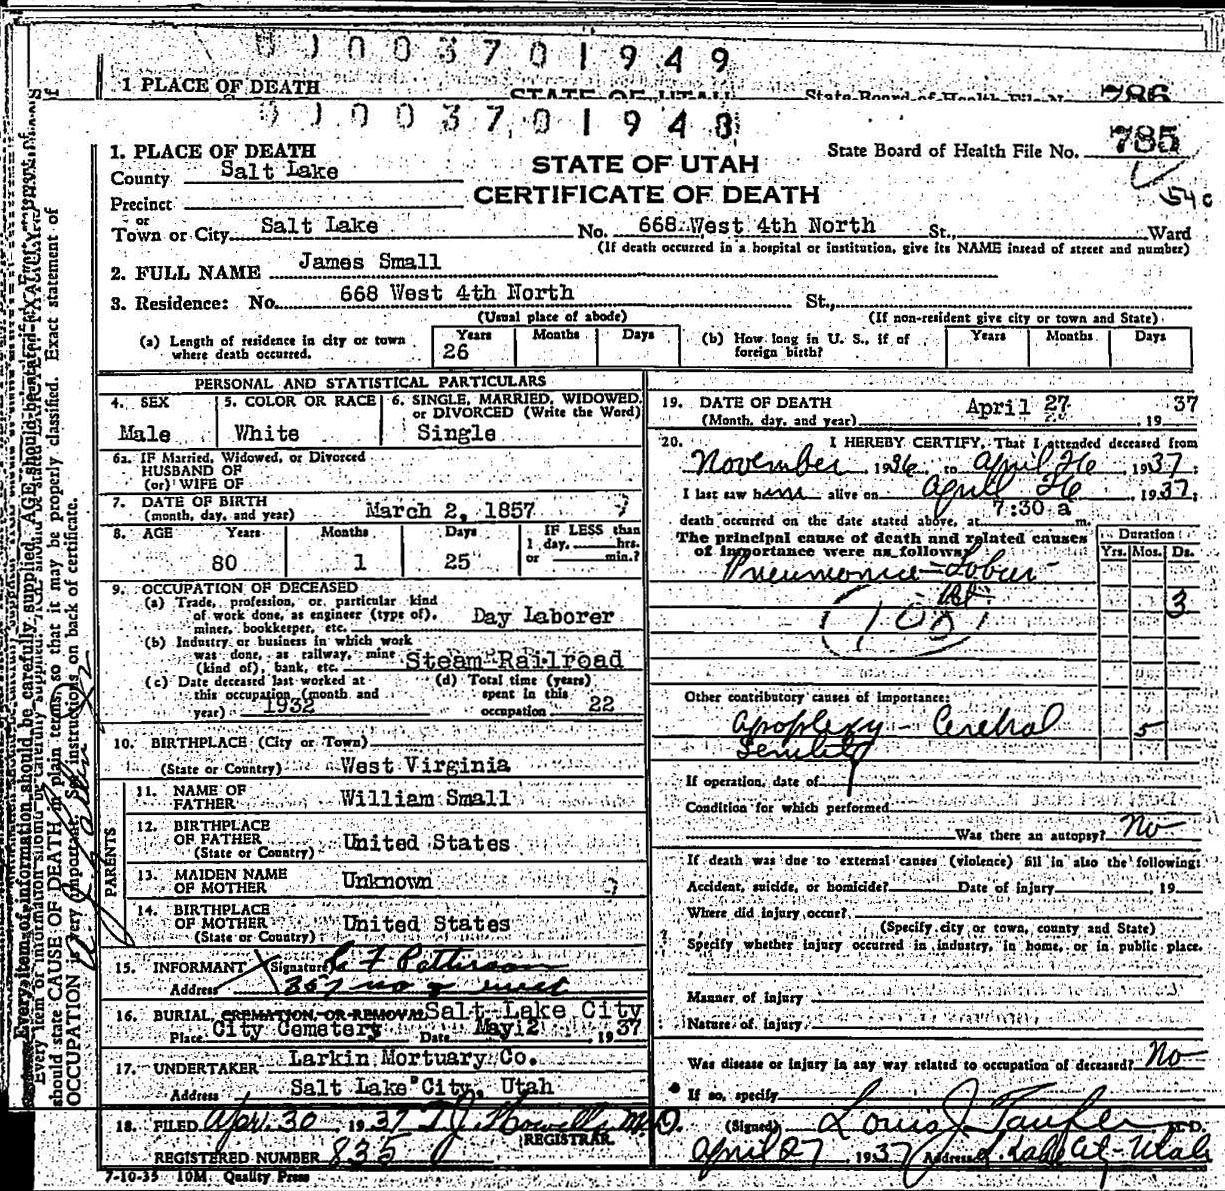 0 0 0 3 7 0 1 9 4 9
1 PLACE OF DEATH STATE OF UTAH State Board of Health File No. 786
0 0 0 3 7 0 1 9 4 8
1. PLACE OF DEATH
County Salt Lake
Precinct
or
Town or City Salt Lake No. 668 West 4th North St., Ward
STATE OF UTAH
CERTIFICATE OF DEATH
State Board of Health File No. 785
54c
(If death occurred in a hospital or institution, give its NAME insead of street and number)
2. FULL NAME James Small
3. Residence: No. 668 West 4th North St.,
(Usual place of abode) (If non-resident give city or town and State)
(a) Length of residence in city or town where death occurred. Years 26 Months Days
(b) How long in U. S., if of foreign birth? Years Months Days
PERSONAL AND STATISTICAL PARTICULARS
4. SEX Male
5. COLOR OR RACE White
6. SINGLE, MARRIED, WIDOWED, or DIVORCED (Write the Word) Single
6a. IF Married, Widowed, or Divorced
HUSBAND OF
(or) WIFE OF
7. DATE OF BIRTH
(month, day, and year) March 2, 1857
8. AGE Years 80 Months 1 Days 25 IF LESS than 1 day, hrs. or min.?
9. OCCUPATION OF DECEASED
(a) Trade, profession, or particular kind
of work done, as engineer (type of),
miner, bookkeeper, etc. Day Laborer
(b) Industry or business in which work
was done, as railway, mine
(kind of), bank, etc. Steam Railroad
(c) Date deceased last worked at
this occupation (month and
year) 1932
(d) Total time (years)
spent in this
occupation 22
10. BIRTHPLACE (City or Town)
(State or Country) West Virginia
PARENTS
11. NAME OF FATHER William Small
12. BIRTHPLACE
OF FATHER
(State or Country) United States
13. MAIDEN NAME
OF MOTHER Unknown
14. BIRTHPLACE
OF MOTHER
(State or Country) United States
15. INFORMANT (Signature) F Patterson
Address 357 no
16. BURIAL, CREMATION, OR REMOVAL Salt Lake City
Place City Cemetery Date May 2 1937
17. UNDERTAKER Larkin Mortuary Co.
Address Salt Lake City, Utah
18. FILED Apr. 30 1937 T J Howells M.D.
REGISTRAR.
REGISTERED NUMBER 835
7-10-35 10M Quality Press
19. DATE OF DEATH
(Month, day, and year) April 27 19 37
20. I HEREBY CERTIFY, That I attended deceased from
November 1936 to April 26 1937;
I last saw him alive on April 26, 1937;
7:30 a
death occurred on the date stated above, at m.
The principal cause of death and related causes
of importance were as follows:
Duration
Yrs. Mos. Ds.
Pneumonia - Lobar -
3
108
Other contributory causes of importance:
Apoplexy - Cerebral 5
Senility
If operation, date of
Condition for which performed
Was there an autopsy? No
If death was due to external causes (violence) fill in also the following:
Accident, suicide, or homicide? Date of injury 19
Where did injury occur?
(Specify city or town, county and State)
Specify whether injury occurred in industry, in home, or in public place.
Manner of injury
Nature of injury
Was disease or injury in any way related to occupation of deceased? No
If so, specify
(Signed) Louis J Taufer M.D.
April 27 1937 Address S. Lake City - Utah
should state CAUSE OF DEATH in plain terms, so that it may be properly classified. Exact statement of
OCCUPATION is very important. See instructions on back of certificate.